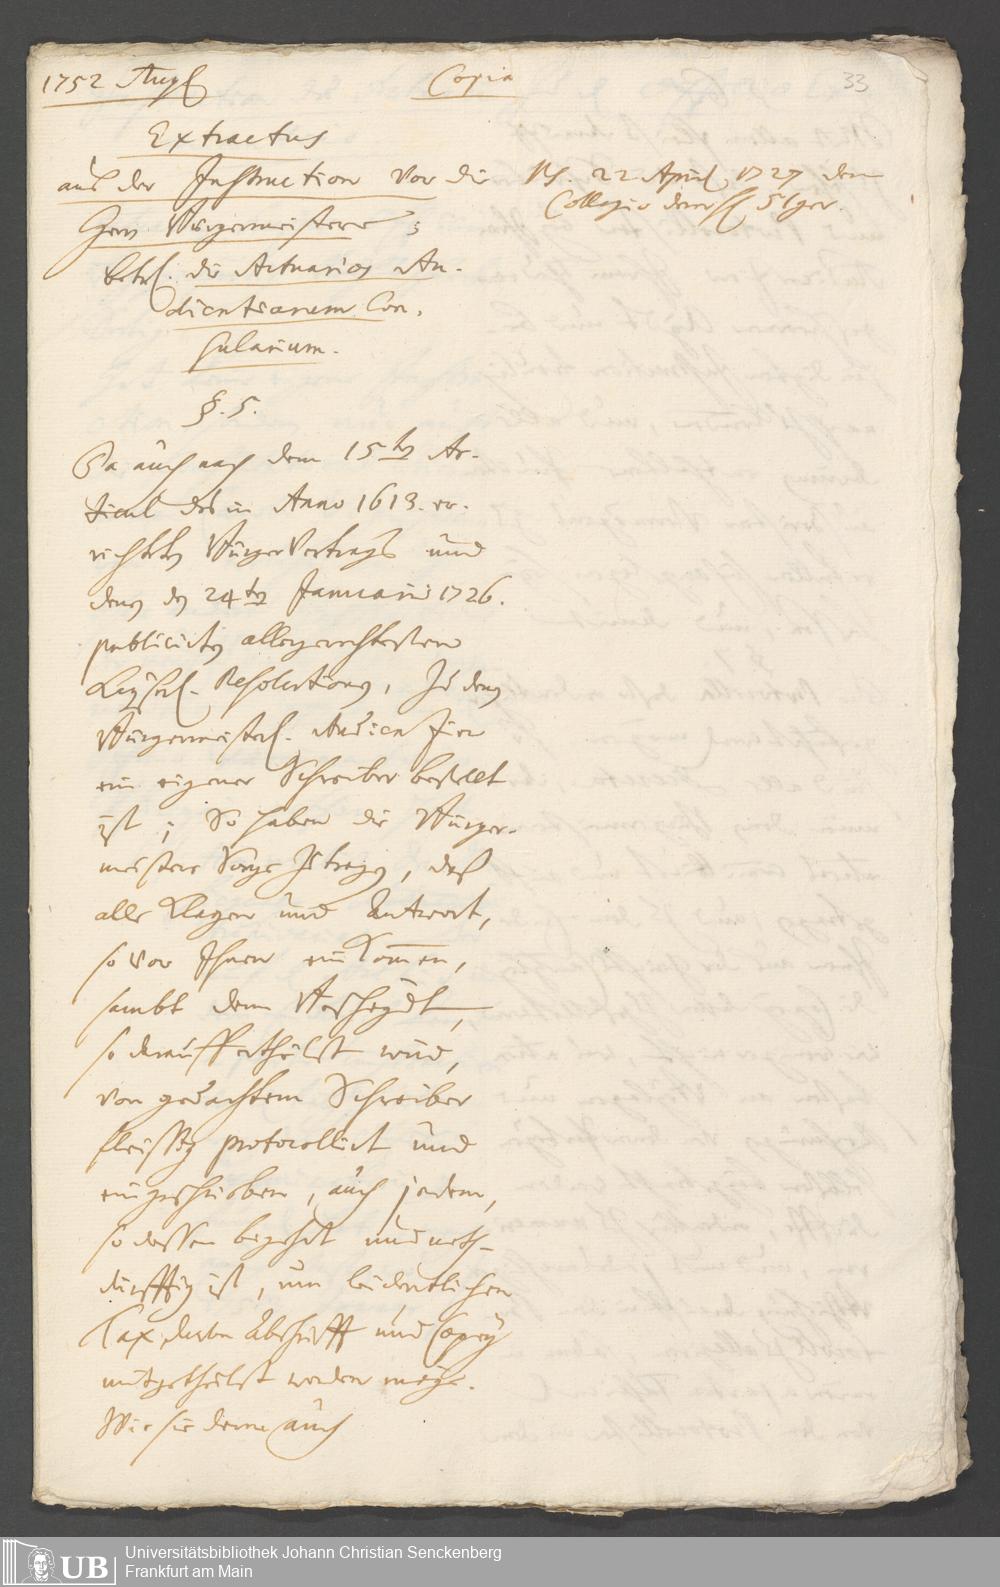 1752 Augl
Copia
33
Extractus
auß der Instruction vor die
Herrn Bürgermeistere;
betrl. die Actuarios Au-
dientiarum Con-
sularium.
Ps. 22 April 1727 dem
Collegio der 51ger.
§. 5.
Da auch nach dem 15ten Ar-
ticul des in Anno 1613. er-
richteten Bürger Vertrags und
denen den 24ten Januarii 1726.
publicirten allergerechtesten
Kayserl. Resolutionen, Zu denen
Bürgermeisterl. Audienzien
ein eigener Schreiber bestellt
ist; So haben die Bürger-
meistere Sorge Zutragen, daß
alle Klagen und Antwort,
so vor Ihnen einkommen,
sambt dem Bescheydt,
so darauff ertheilet wird,
von gedachtem Schreiber
fleissig protocollirt und
eingeschrieben, auch jedem,
so dessen begehrt und noth-
dürfftig ist, um leidentlichen
Tax, davon Abschrifft und Copey
mitgetheilet werden möge.
Wie sie denn auch
Universitätsbibliothek Johann Christian Senckenberg
Frankfurt am Main
UB